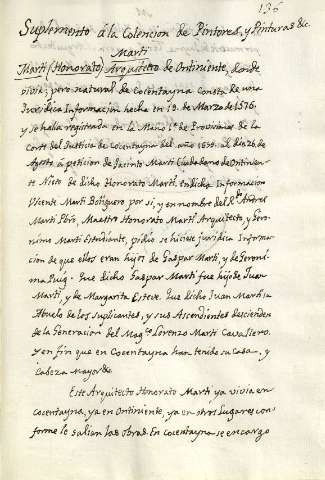 136
Suplemento á la Colencion de Pintores, y Pinturas &c.
Marti
Martí (Honorato) Arquitecto de Ontiniente, donde
vivia; pero natural de Cocentayna Consta de una
Juridica Informacion hecha en 19. de Marzo de 1576.
y se halla registrada en la Mano 1.ª de Provisiones de la
Corte del Justicia de Cocentayna del año 1639. al dia 26 de
Agosto á peticion de Jacinto Martí Ciudadano de Ontinien-
te Nieto de dicho Honorato Martí. En dicha Informacion
Vicente Martí Botiguero por si, y en nombre del R.do Andres
Martí Pbro, Maestro Honorato Martí Arquitecto, y Gero-
nimo Martí Estudiante, pidio se hiciese juridica Informa-
cion de que ellos eran hijos de Gaspar Martí, y de Geroni-
ma Puig. Que dicho Gaspar Martí fue hijo de Juan
Martí, y de Margarita Esteve. Que dicho Juan Martí
Abuelo de los suplicantes, y sus Ascendientes descienden
de la Generacion del Mag.co Lorenzo Martí Cavallero.
y en fin que en Cocentayna han tenido su Casa, y
Cabeza Mayor &c.
Este Arquitecto Honorato Martí ya vivia en
Cocentayna, ya en Ontiniente, ya en otros Lugares con-
forme le salian las obras. En Cocentayna se encargo